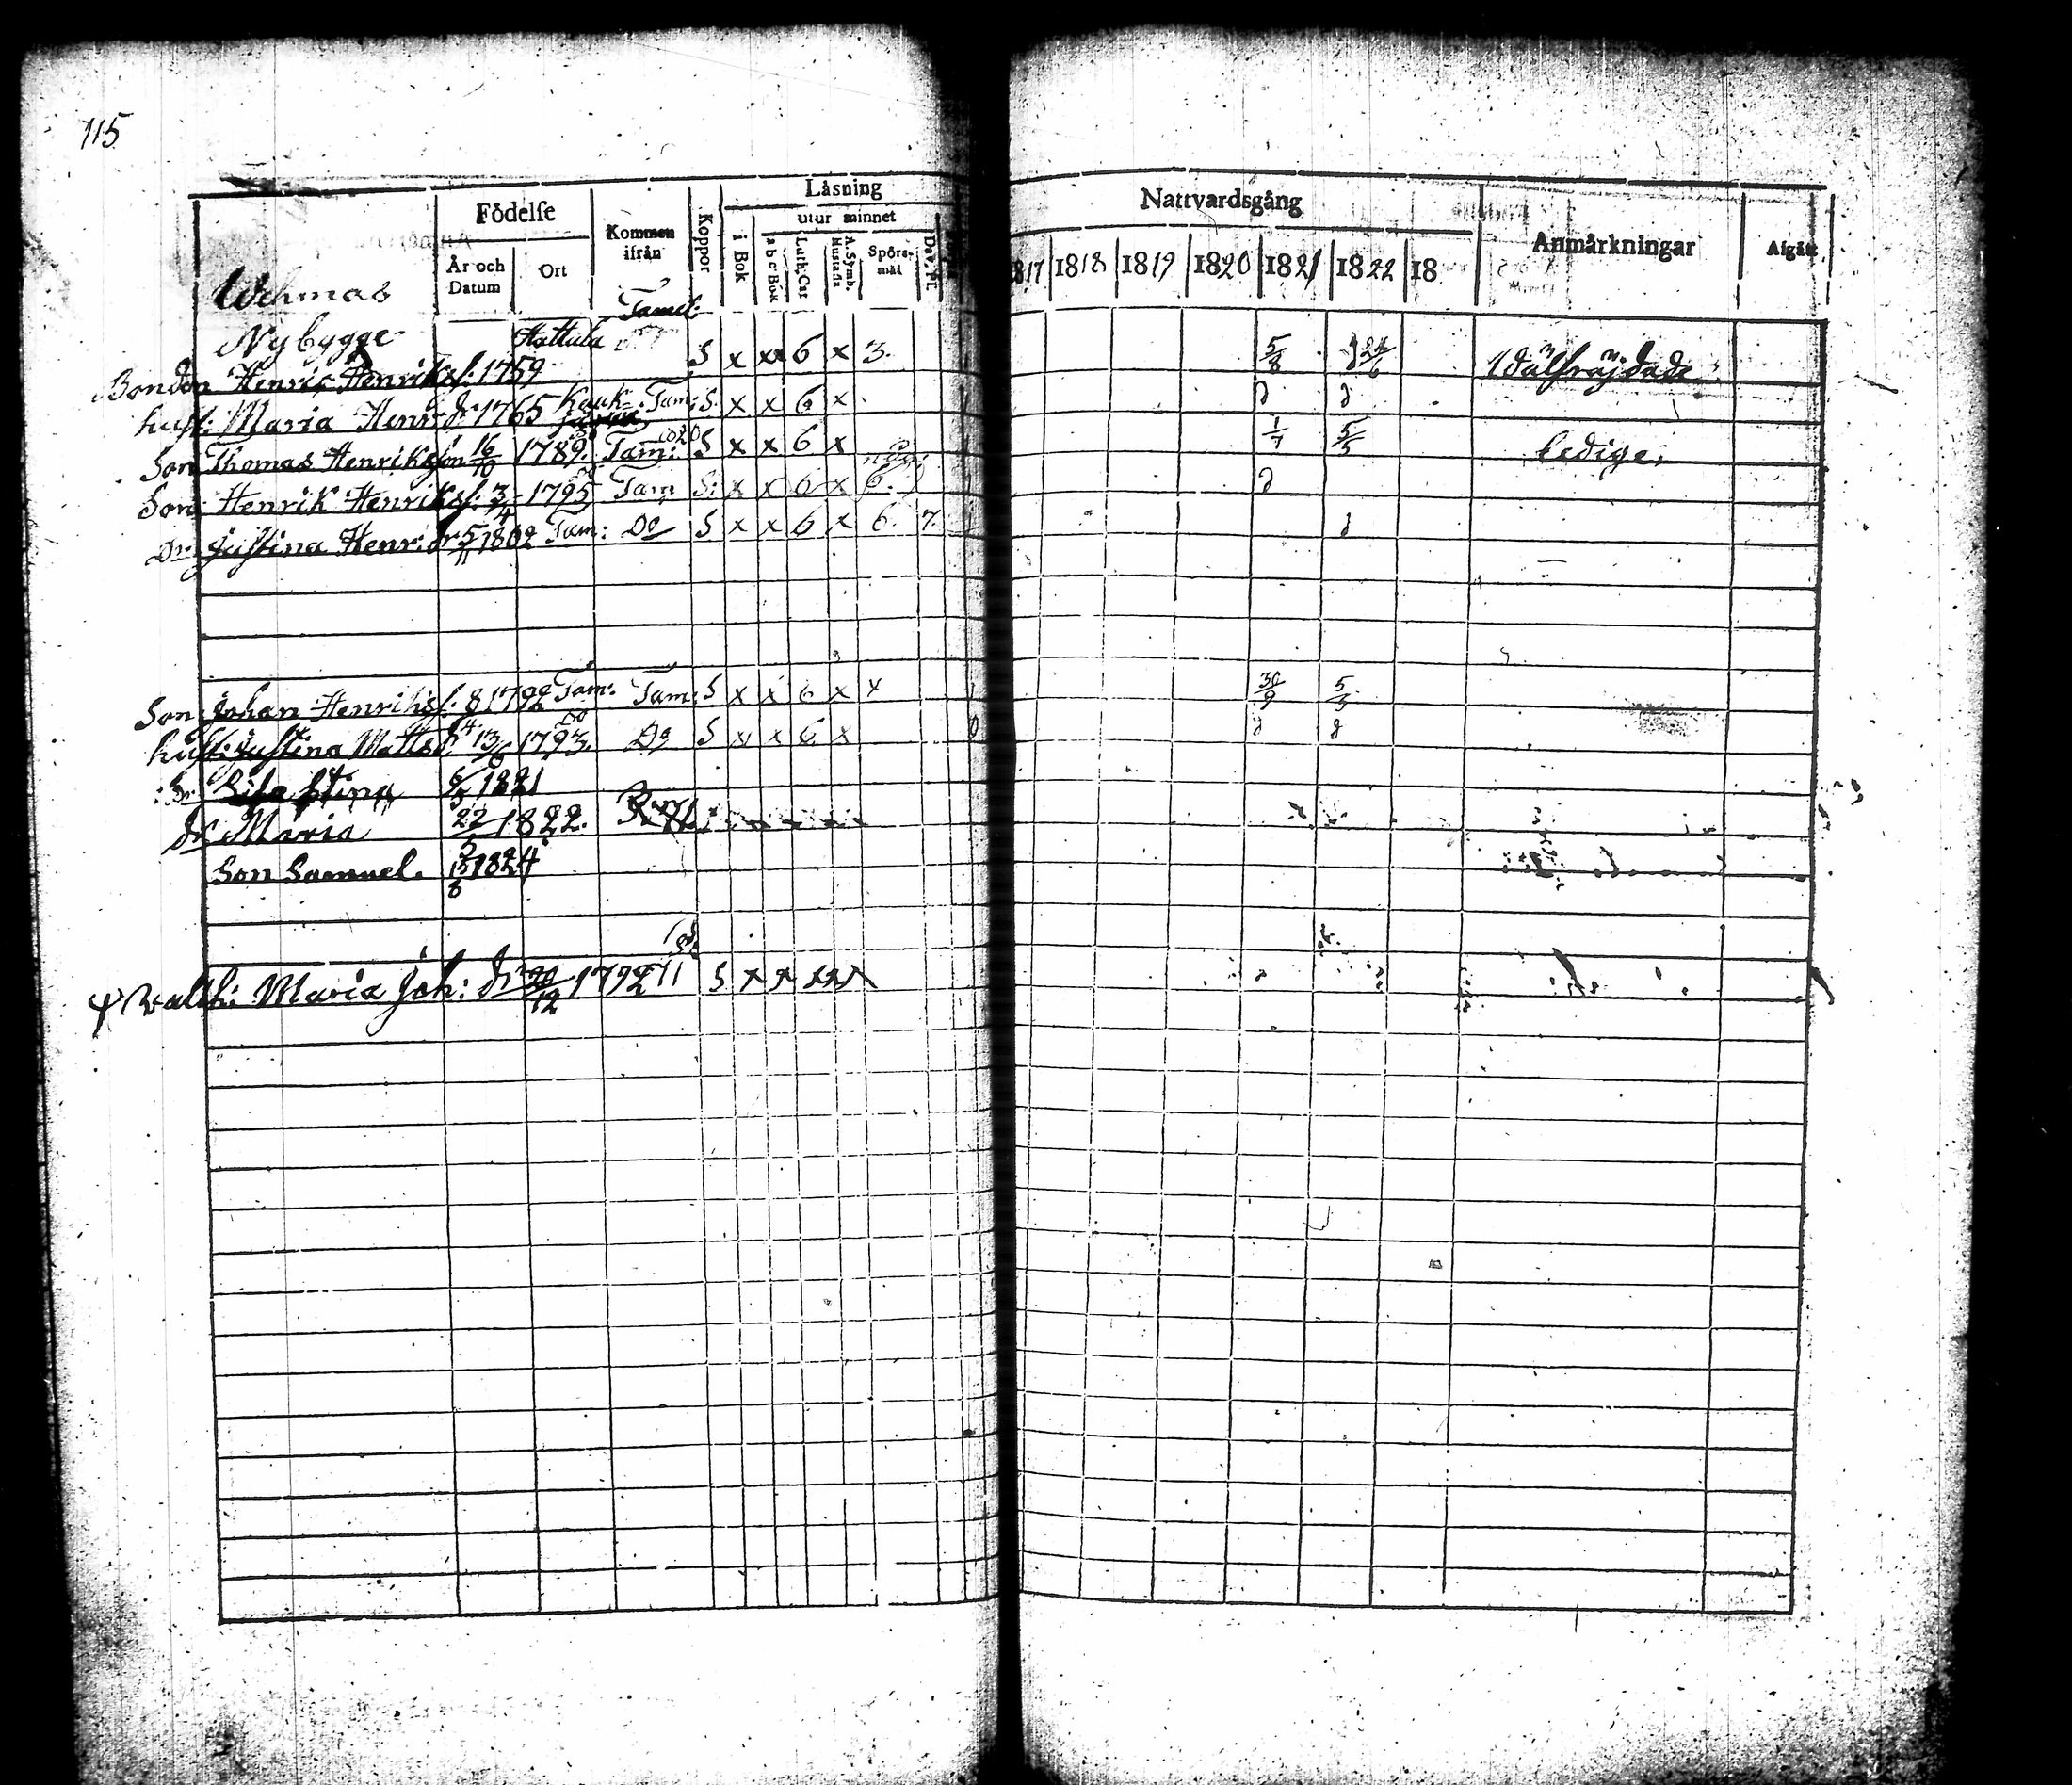 115
Läsning
Nattvardsgång
Födelse
Kommen ifrån
Koppor
utur minnet
i Bok
a b c Bok
Luth. Cat
A. Symb. Hustafla
Spörsmål
Dav. Ps.
År och Datum
Ort
1817 1818 1819 1820 1821 1822 18
Anmärkningar
Afgått
Wehmas
Nybygge
Bonden Henric Henrikss: 1759 Hattula Tamel: S x xx 6 x 3. 5/8 24/6
hust: Maria Henr dr 1765 Tam: S. x x 6 x
Son Thomas Henriksson 16/10 1789. Do Tam: 1820 S x x 6 x 1/7 5/5 ledige.
Son Henrik Henrikss: 3/4 1795 Do Tam S: x x 6 x 6.
Dr. Justina Henr: dr 5/11 1802 Tam: Do S x x 6 x 6. 7.
Son Johan Henrikss: 8/4 1792 Tam: Tam: S x x 6 x x 30/9 5/5
hust: Justina Matts dr 13/6 1793. Do Do S x x 6 x
Dr Lisa Stina 6/3 1821
dr Maria 22/5 1822.
Son Samuel. 15/8 1824
Maria Joh: dr 20/12 1792 S x x x x x